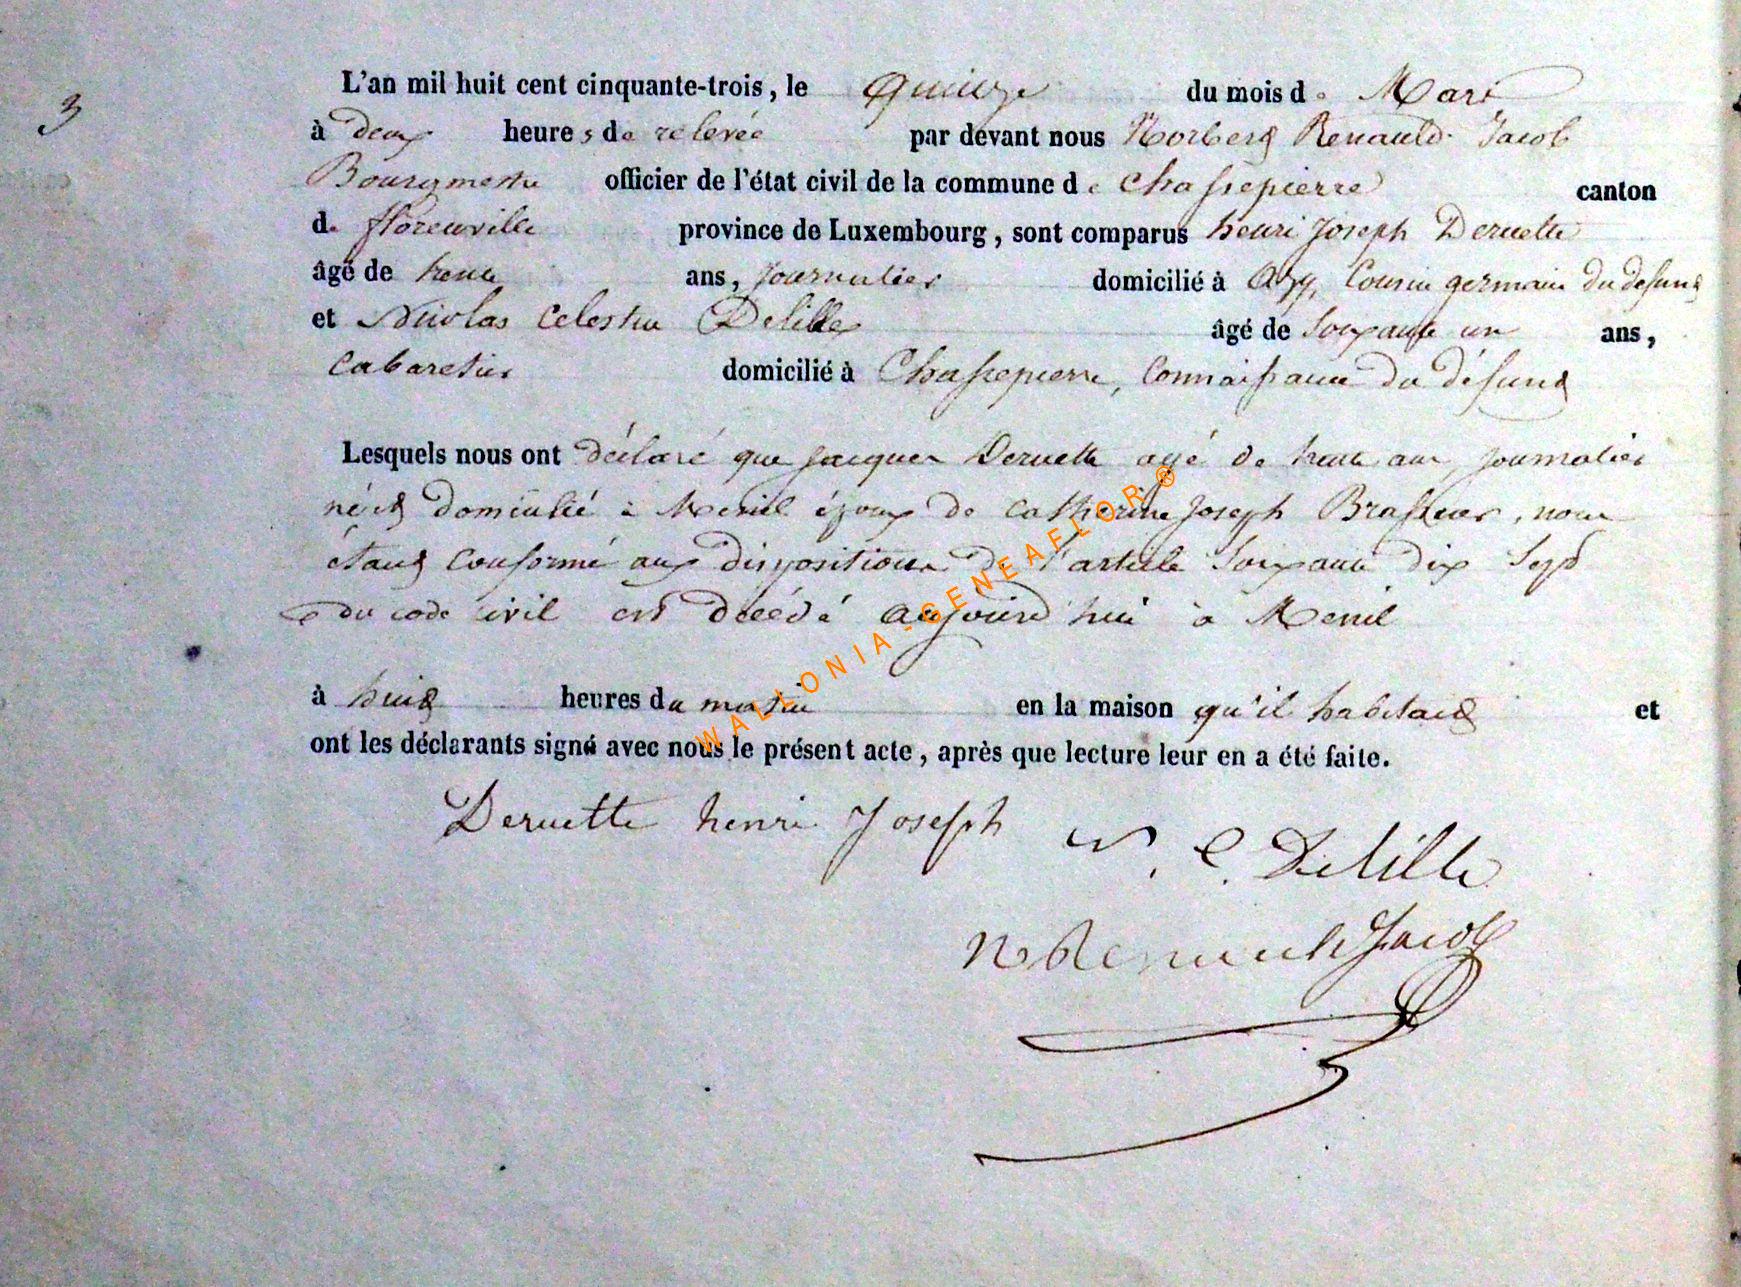 3
L'an mil huit cent cinquante-trois, le quinze du mois de Mars
à deux heures de relevée par devant nous Norbert Renauld Jacob
Bourgmestre officier de l'état civil de la commune de Chassepierre canton
de florenville province de Luxembourg, sont comparus henri joseph Deruette
âgé de trente ans, journalier domicilié à Azy, Cousin germain du defunt
et Nicolas Celestin Delille âgé de soixante un ans,
cabaretier domicilié à Chassepierre, Connaissance du défunt
Lesquels nous ont déclaré que jacques Deruette agé de trente ans journalier
né et domicilié à Menil époux de catherine joseph Brasseur, nous
étant conformé aux dispositions de l'article soixante dix sept
du code civil est décédé aujourd'hui à Menil
à huit heures du matin en la maison qu'il habitait et
ont les déclarants signé avec nous le présent acte, après que lecture leur en a été faite.
Deruette henri Joseph
N. C. Delille
N Renauld Jacob
WALLONIA-GENEAFLOR®